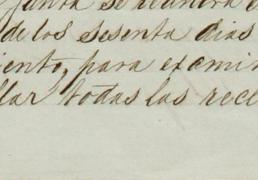 Junta se reunirá
de los sesenta dias
iento, para exami
llar todas las recl